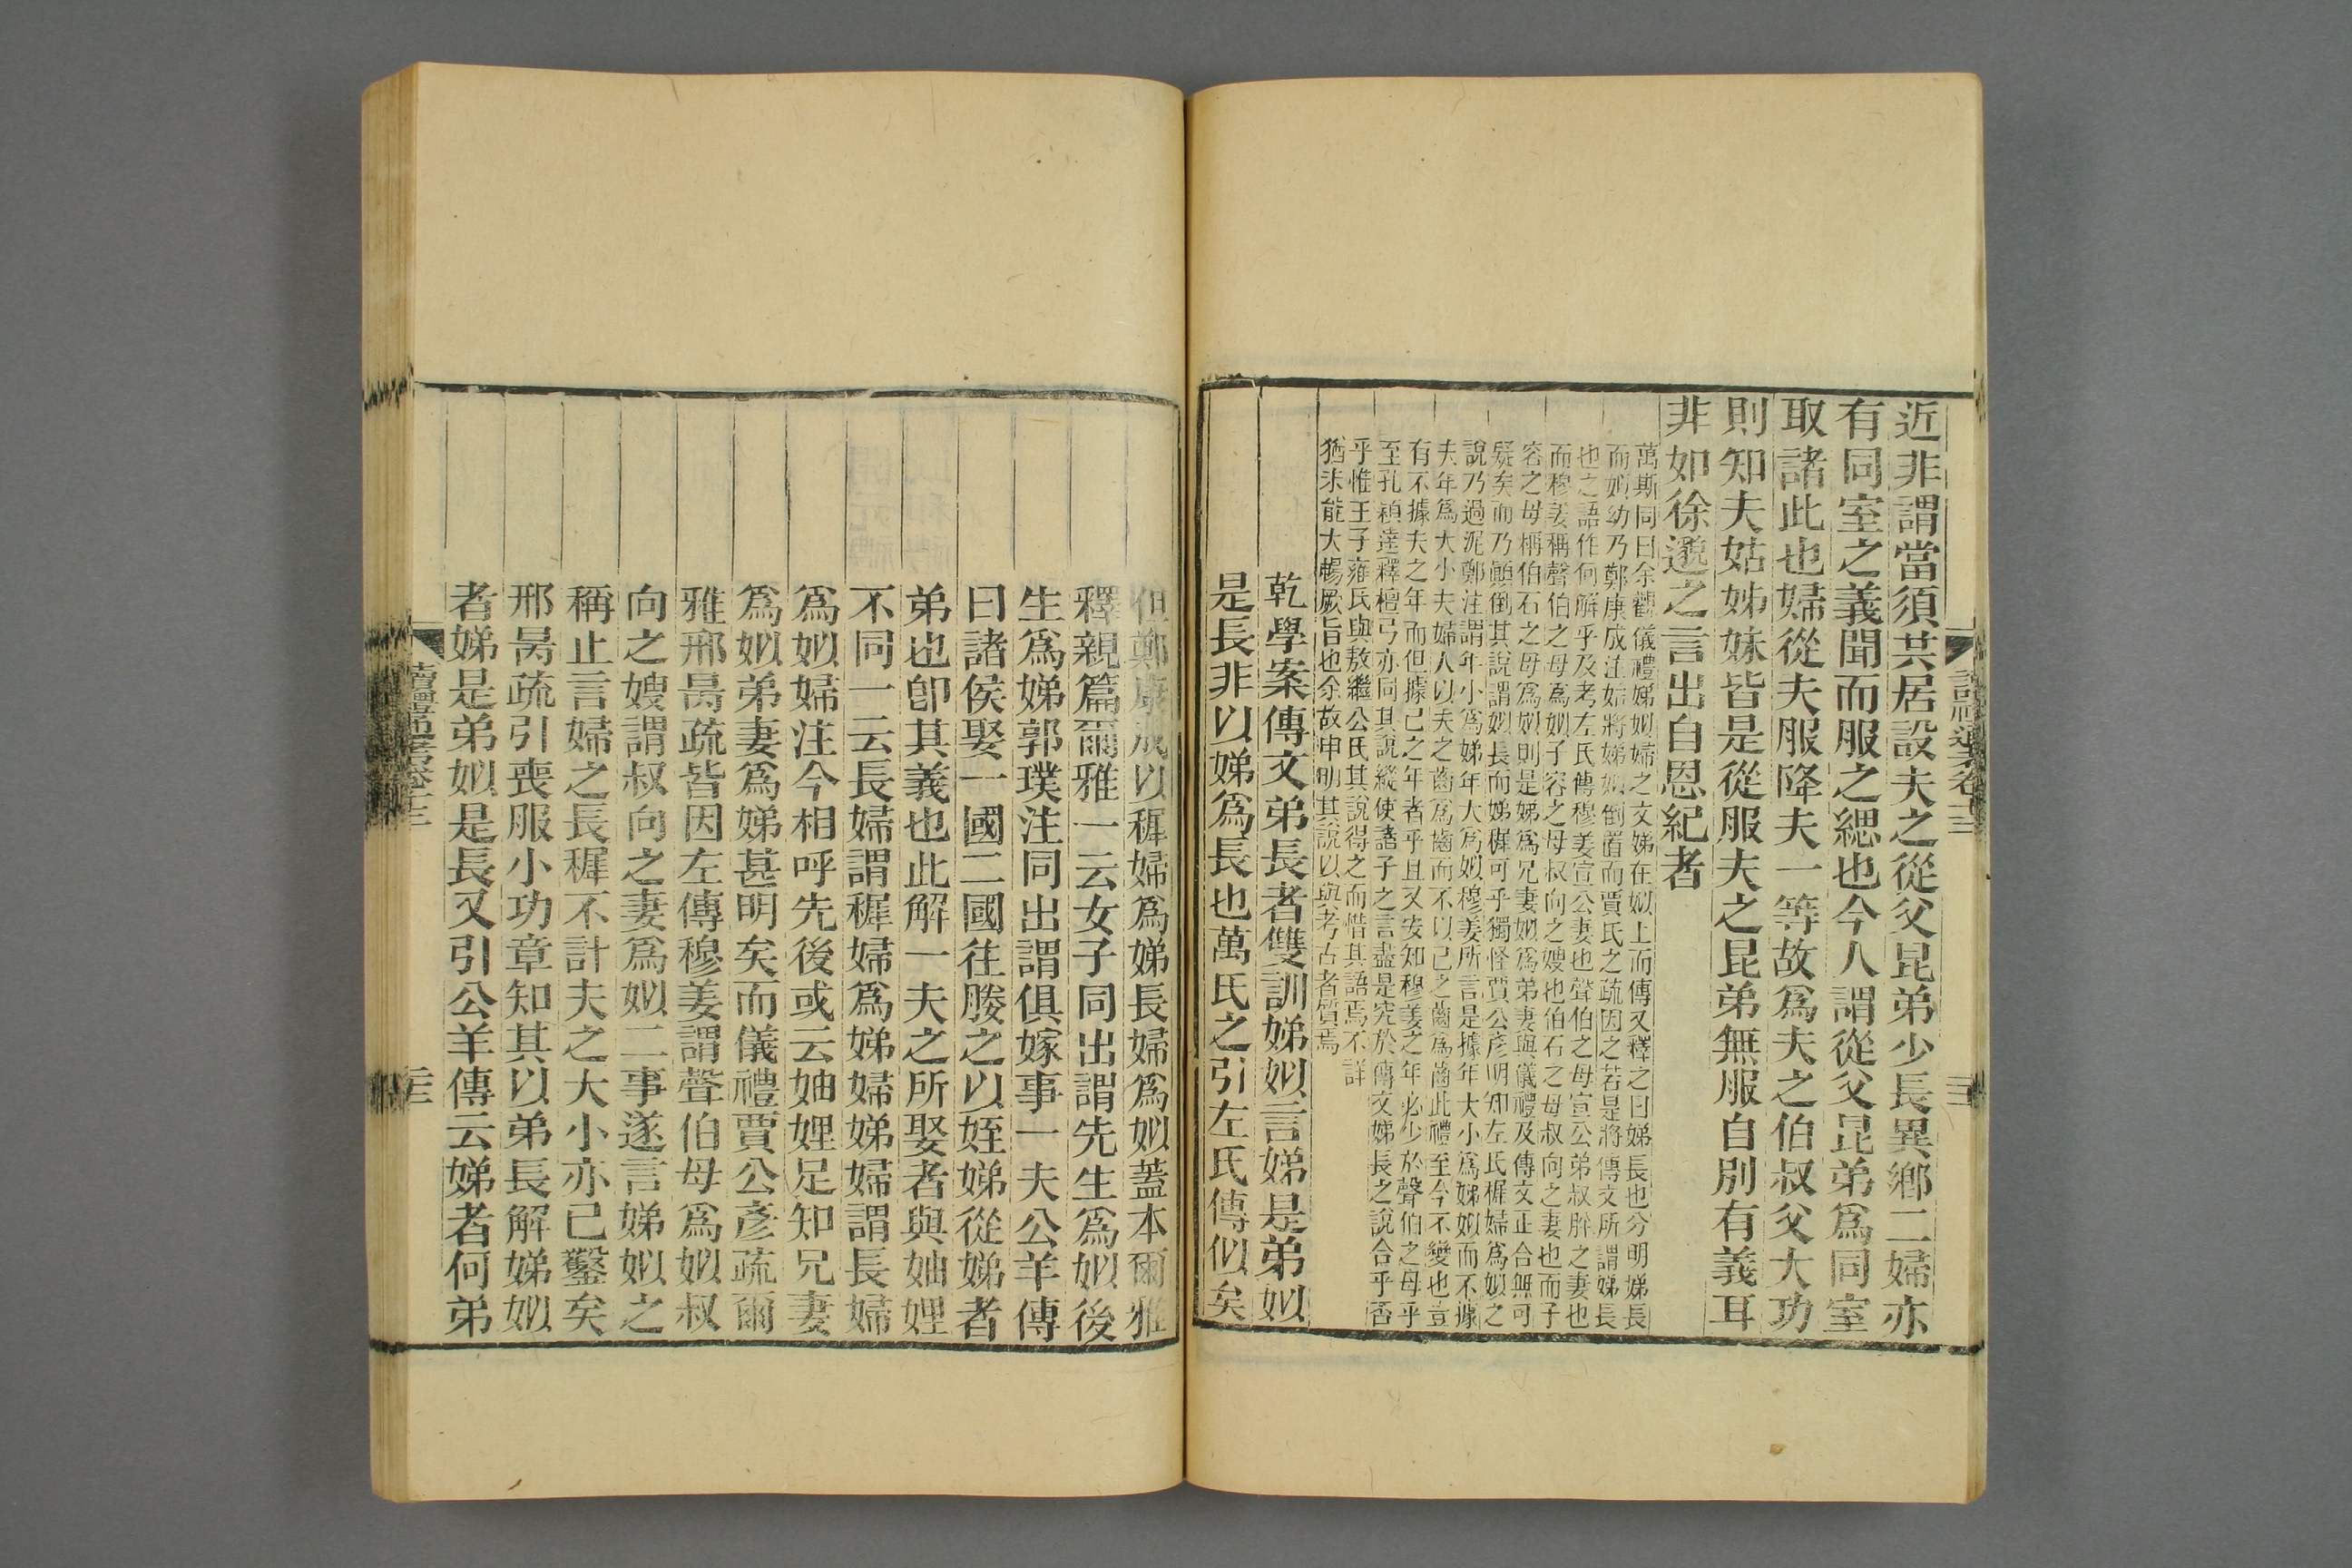 近非謂當須共居設夫之從父昆弟少長異鄉二婦亦
有同室之義聞而服之緦也今人謂從父昆弟爲同室
取諸此也婦從夫服降夫一等故爲夫之伯叔父大功
則知夫姑姊妹皆是從服夫之昆弟無服自別有義耳
非如徐邈之言出自恩紀者
萬斯同曰余觀儀禮娣姒婦之文娣在姒上而傳又釋之曰娣長也分明娣長
而姒幼乃鄭康成注始將娣姒倒置而賈氏之疏因之若是將傳文所謂娣長
也之語作何解乎及考左氏傳穆姜宣公妻也聲伯之母宣公弟叔肸之妻也
而穆姜稱聲伯之母爲姒子容之母叔向之嫂也伯石之母叔向之妻也而子
容之母稱伯石之母爲姒則是娣爲兄妻姒爲弟妻與儀禮及傳文正合無可
疑矣而乃顛倒其說謂姒長而娣穉可乎獨怪賈公彥明知左氏穉婦爲姒之
說乃過泥鄭注謂年小爲娣年大爲姒穆姜所言是據年大小爲娣姒而不據
夫年爲大小夫婦人以夫之齒爲齒而不以己之齒爲齒此禮至今不變也豈
有不據夫之年而但據己之年者乎且又安知穆姜之年必少於聲伯之母乎
至孔穎達釋檀弓亦同其說縱使諸子之言盡是究於傳文娣長之說合乎否
乎惟王子雍氏與敖繼公氏其說得之而惜其語焉不詳
猶未能大暢厥旨也余故申明其說以與考古者質焉
乾學案傳文弟長者雙訓娣姒言娣是弟姒
是長非以娣爲長也萬氏之引左氏傳似矣
但鄭康成以穉婦爲娣長婦爲姒蓋本爾雅
釋親篇爾雅一云女子同出謂先生爲姒後
生爲娣郭璞注同出謂俱嫁事一夫公羊傳
曰諸侯娶一國二國往媵之以姪娣從娣者
弟也卽其義也此解一夫之所娶者與妯娌
不同一云長婦謂穉婦爲娣婦娣婦謂長婦
爲姒婦注今相呼先後或云妯娌足知兄妻
爲姒弟妻爲娣甚明矣而儀禮賈公彥疏爾
雅邢昺疏皆因左傳穆姜謂聲伯母爲姒叔
向之嫂謂叔向之妻爲姒二事遂言娣姒之
稱止言婦之長穉不計夫之大小亦已鑿矣
邢昺疏引喪服小功章知其以弟長解娣姒
者娣是弟姒是長又引公羊傳云娣者何弟